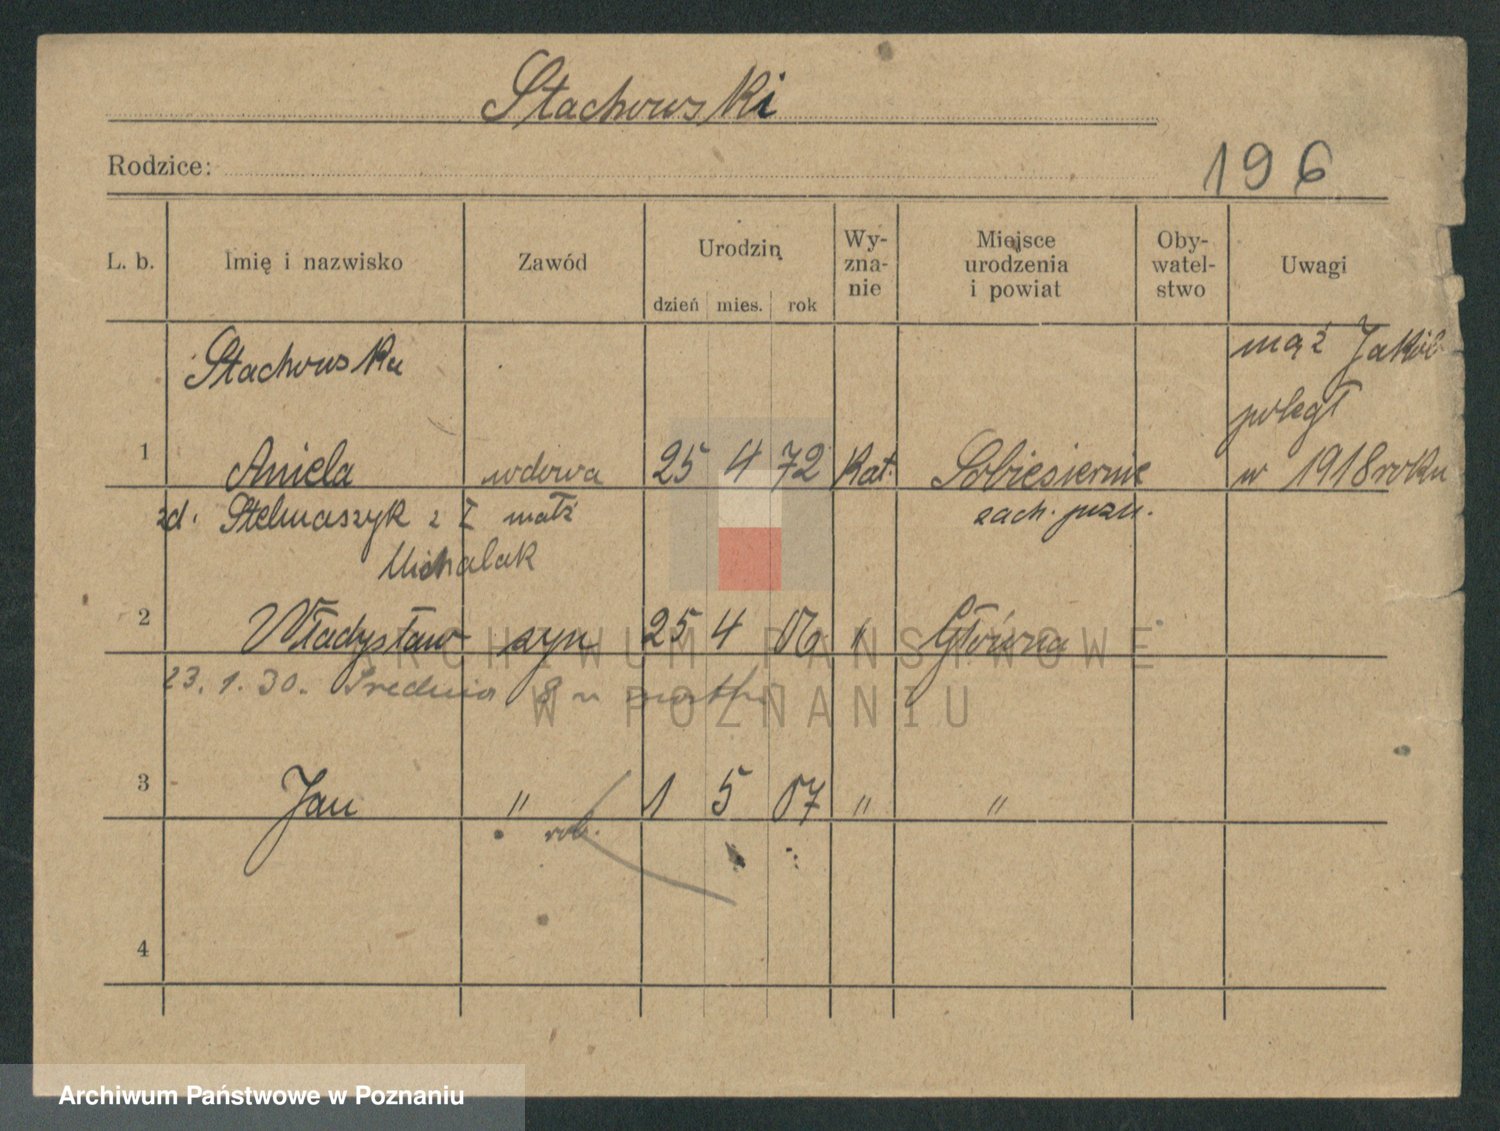 Stachowski
Rodzice:
196
L. b. Imię i nazwisko Zawód Urodzin Wy-zna-nie Miejsce urodzenia i powiat Oby-watel-stwo Uwagi
dzień mies. rok
Stachowska mąż Jakób
poległ
1 Aniela wdowa 25 4 72 Kat. Sobiesiernie w 1918 roku
zd. Stelmaszyk z I małż zach. pozn.
Michalak
2 Władysław syn 25 4 06 " Główna
23. 1. 30. Średnia 8 u matki
3 Jan " 1 5 07 " "
rob.
4
ARCHIWUM PAŃSTWOWE
W POZNANIU
Archiwum Państwowe w Poznaniu